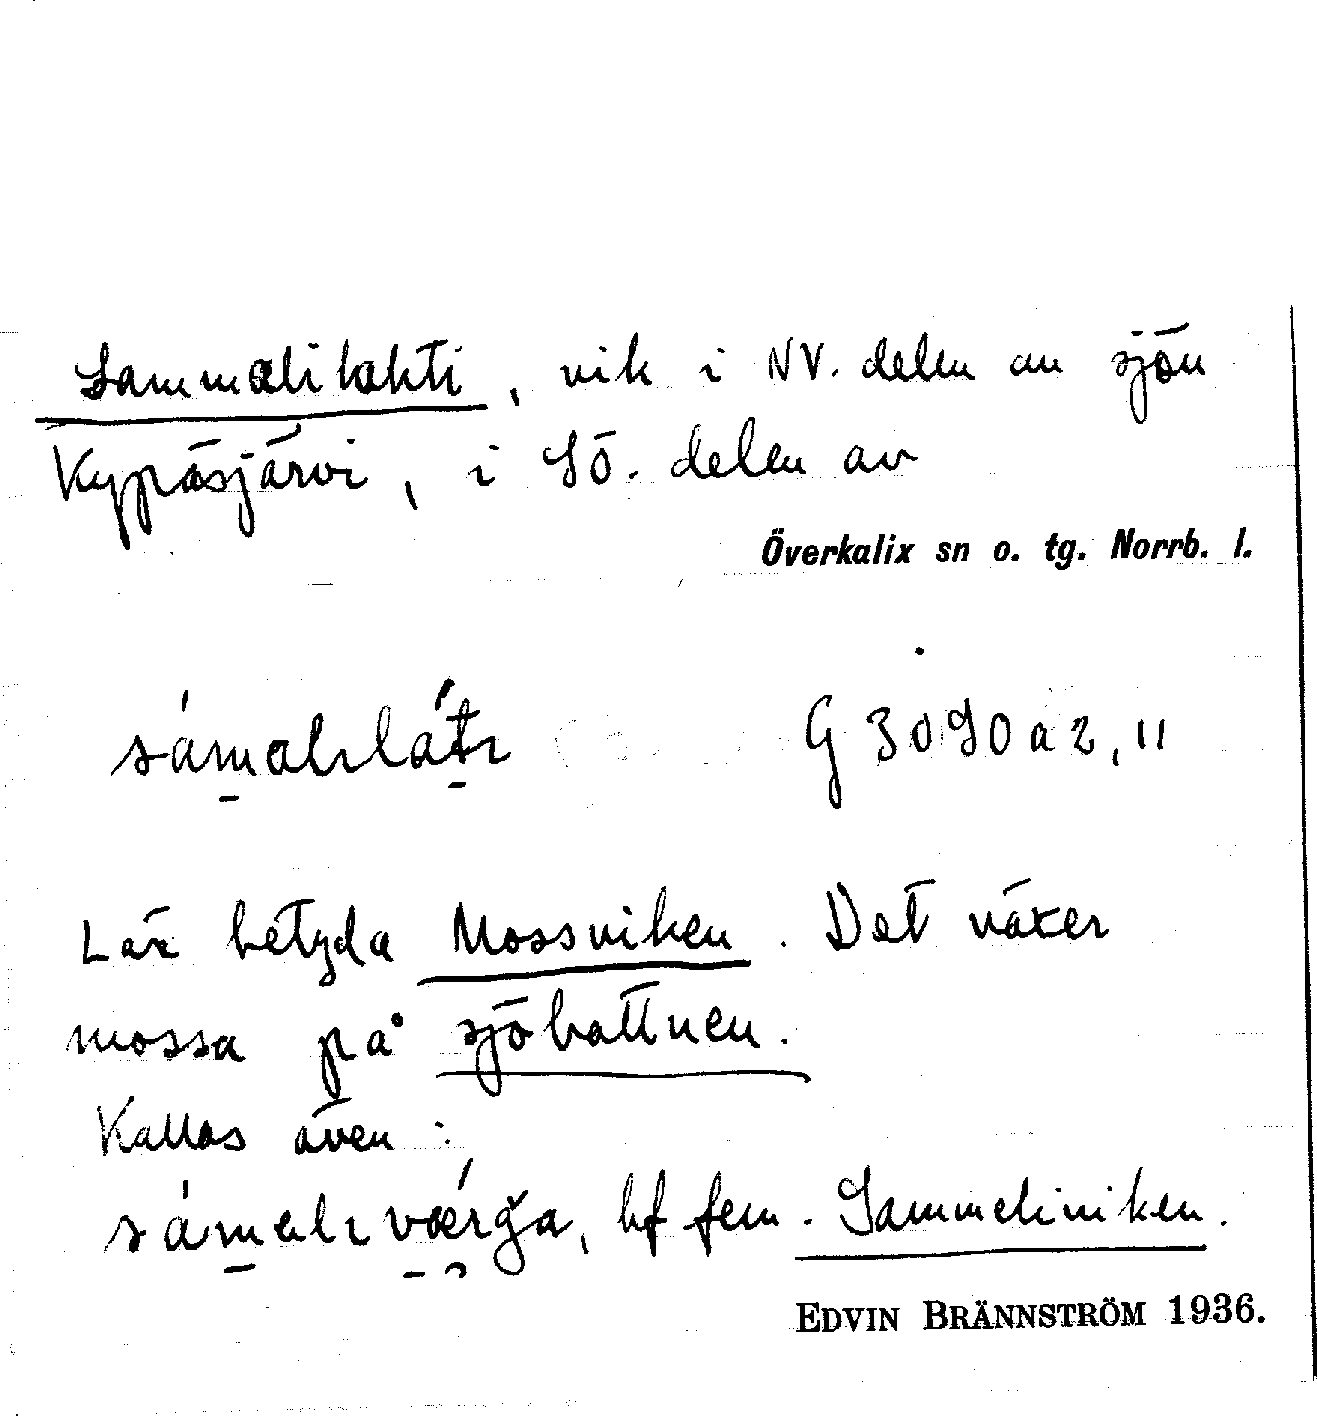 Sammalilahti, vik i NV. delen av sjön
Kypäsjärvi, i SÖ. delen av
Överkalix sn o. tg. Norrb. l.
sámalılátı G 3090a2,11
Lär betyda Mossviken. Det växer
mossa på sjöbottnen.
Kallas även:
sámælı vǽrğa, bf fem. Sammeliviken.
EDVIN BRÄNNSTRÖM 1936.